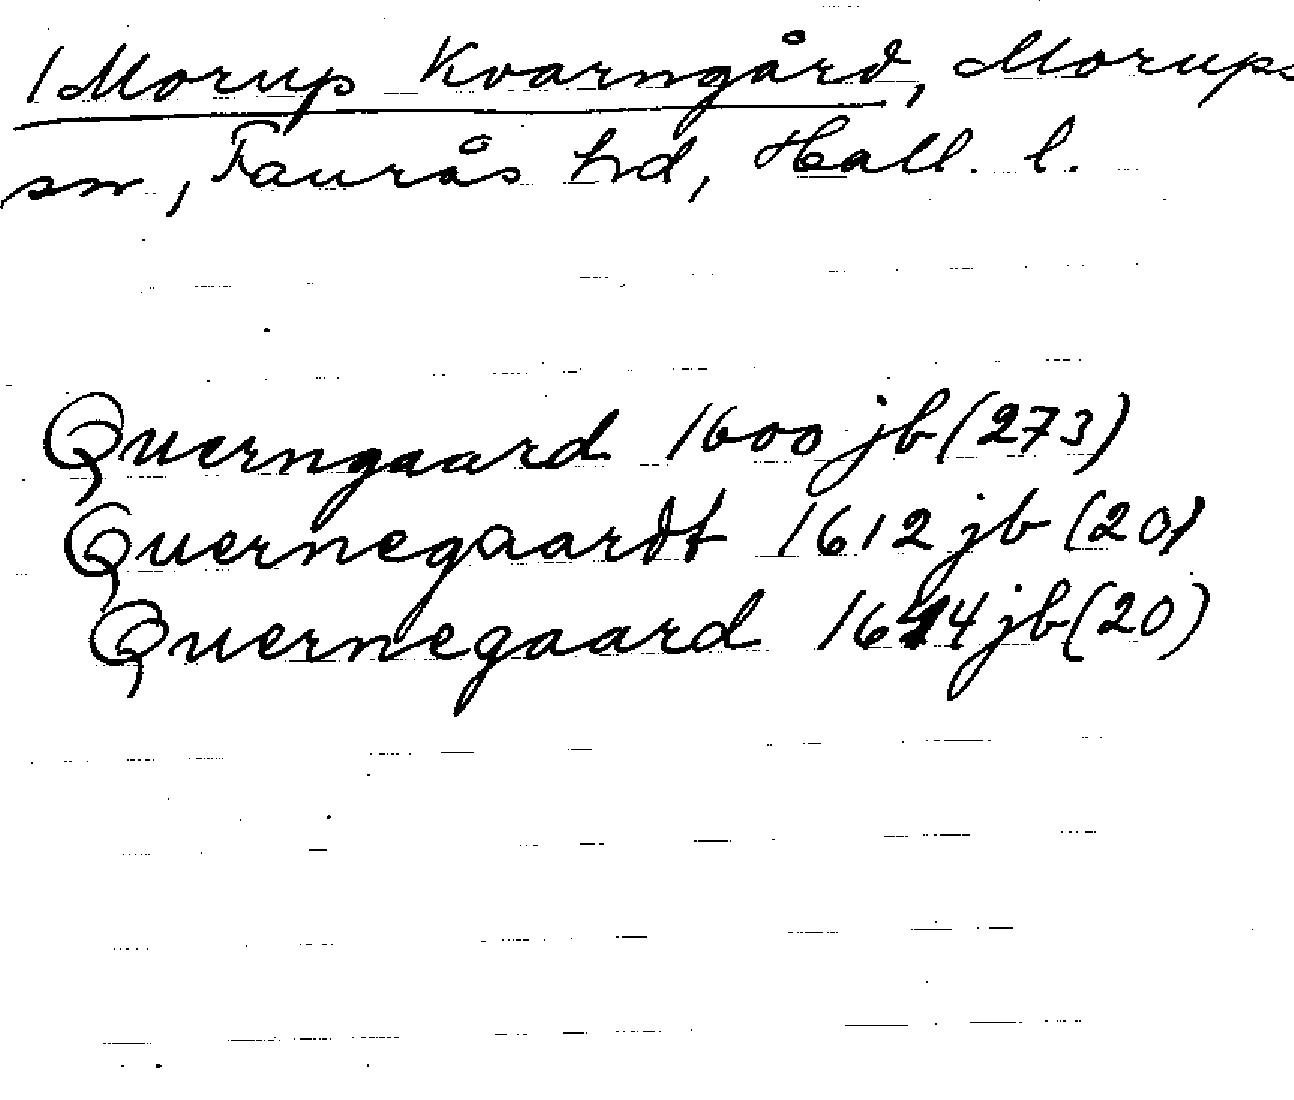 1 Morup Kvarngård, Morups
sn, Faurås hd, Hall. l.
Querngaard 1600 jb (273)
Quernegaardt 1612 jb (20)
Quernegaard 1614 jb (20)